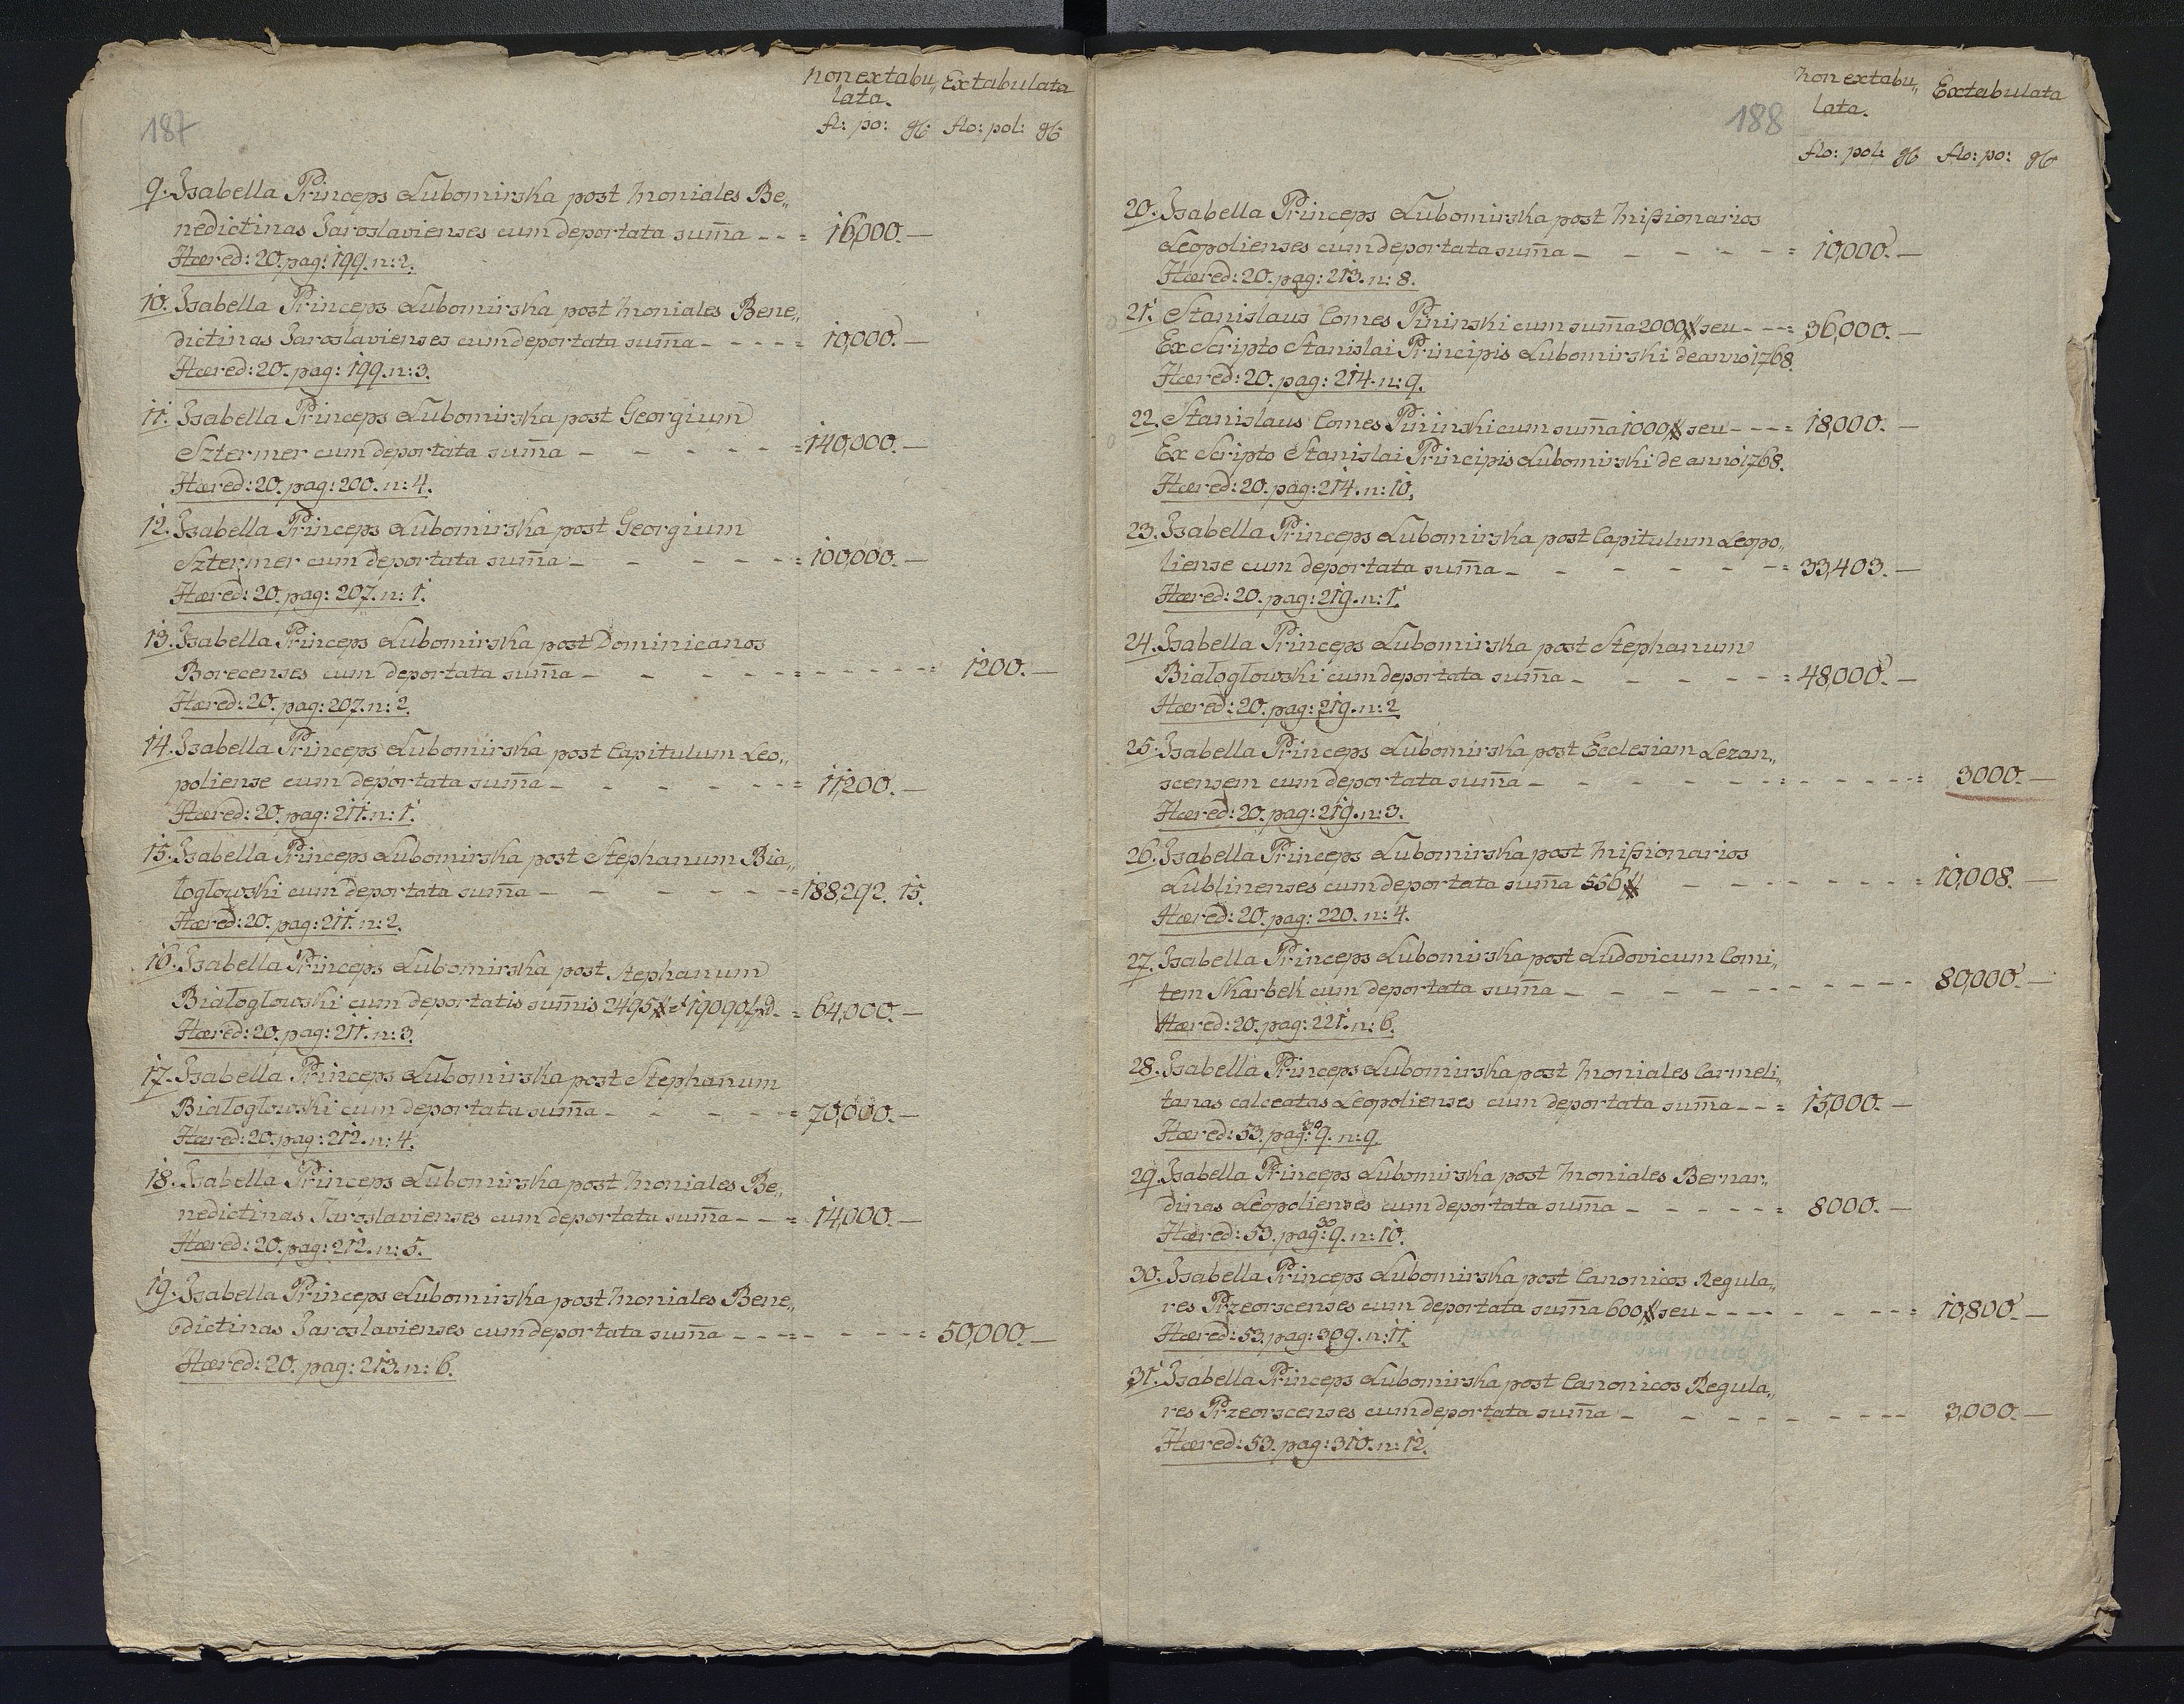 187
non extabu„ Extabulata
lata.
fl: po: gſ: flo: pol: gſ:
9. Isabella Princeps Lubomirska post Moniales Be„
nedictinas Jaroslavienses cum deportata sum̄a - - = 16,000. —
Hæred: 20. pag: 199. n: 2.
10. Isabella Princeps Lubomirska post Moniales Bene„
dictinas Jaroslavienses cum deportata sum̄a - - - - = 10,000. —
Hæred: 20. pag: 199. n: 3.
11. Isabella Princeps Lubomirska post Georgium
Sztermer cum deportata sum̄a - - - - - = 140,000. —
Hæred: 20. pag: 200. n: 4.
12. Isabella Princeps Lubomirska post Georgium
Sztermer cum deportata sum̄a - - - - - = 100,000. —
Hæred: 20. pag: 207. n: 1.
13. Isabella Princeps Lubomirska post Dominicanos
Borecenses cum deportata sum̄a - - - - - = - - - - - = 1200. —
Hæred: 20. pag: 207. n: 2.
14. Isabella Princeps Lubomirska post Capitulum Leo„
poliense cum deportata sum̄a - - - - - = 11,200. —
Hæred: 20. pag: 211. n: 1.
15. Isabella Princeps Lubomirska post Stephanum Bia„
łogłowski cum deportata sum̄a - - - - - = 188,292. 15.
Hæred: 20. pag: 211. n: 2.
16. Isabella Princeps Lubomirska post Stephanum
Białogłowski cum deportatis sum̄is 2495 # et 19090 - = 64,000. —
Hæred: 20. pag: 211. n: 3.
17. Isabella Princeps Lubomirska post Stephanum
Białogłowski cum deportata sum̄a - - - - - = 70,000. —
Hæred: 20. pag: 212. n: 4.
18. Isabella Princeps Lubomirska post Moniales Be„
nedictinas Jaroslavienses cum deportata sum̄a - - = 14,000. —
Hæred: 20. pag: 212. n: 5.
19. Isabella Princeps Lubomirska post Moniales Bene„
dictinas Jaroslavienses cum deportata sum̄a - - - = - - - - = 50,000. —
Hæred: 20. pag: 213. n: 6.
188
Non extabu„ Extabulata
lata.
flo: pol: gſ flo: po: gſ
20. Isabella Princeps Lubomirska post Mißionarios
Leopolienses cum deportata sum̄a - - - - - = 10,000. —
Hæred: 20. pag: 213. n: 8.
21. Stanislaus Comes Pininski cum sum̄a 2000 # seu - - - = 36,000. —
Ex Scripto Stanislai Principis Lubomirski de anno 1768.
Hæred: 20. pag: 214. n: 9.
22. Stanislaus Comes Pininski cum sum̄a 1000 # seu - - - = 18,000. —
Ex Scripto Stanislai Principis Lubomirski de anno 1768.
Hæred: 20. pag: 214. n: 10.
23. Isabella Princeps Lubomirska post Capitulum Leopo„
liense cum deportata sum̄a - - - - - = 33,403. —
Hæred: 20. pag: 219. n: 1.
24. Isabella Princeps Lubomirska post Stephanum
Białogłowski cum deportata sum̄a - - - - - = 48,000. —
Hæred: 20. pag: 219. n: 2
25. Isabella Princeps Lubomirska post Ecclesiam Lezan„
scensem cum deportata sum̄a - - - - - = - - - - = 3000. —
Hæred: 20. pag: 219. n: 3.
26. Isabella Princeps Lubomirska post Mißionarios
Lublinenses cum deportata sum̄a 556 # - - - - - - = 10,008. —
Hæred: 20. pag: 220. n: 4.
27. Isabella Princeps Lubomirska post Ludovicum Comi„
tem Skarbek cum deportata sum̄a - - - - - - - - - 80,000. —
Hæred: 20. pag: 221. n: 6.
28. Isabella Princeps Lubomirska post Moniales Carmeli„
tanas calceatas Leopolienses cum deportata sum̄a - - = 15,000. —
Hæred: 53. pag: 309. n: 9.
29. Isabella Princeps Lubomirska post Moniales Bernar„
dinas Leopolienses cum deportata sum̄a - - - - - = 8000. —
Hæred: 53. pag: 309. n: 10.
30. Isabella Princeps Lubomirska post Canonicos Regula„
res Przeorscenses cum deportata sum̄a 600 # seu - - - - - - - = 10,800. —
Hæred: 53. pag: 309. n: 11.
31. Isabella Princeps Lubomirska post Canonicos Regula„
res Przeorscenses cum deportata sum̄a - - - - - - - - - 3,000. —
Hæred: 53. pag: 310. n: 12.